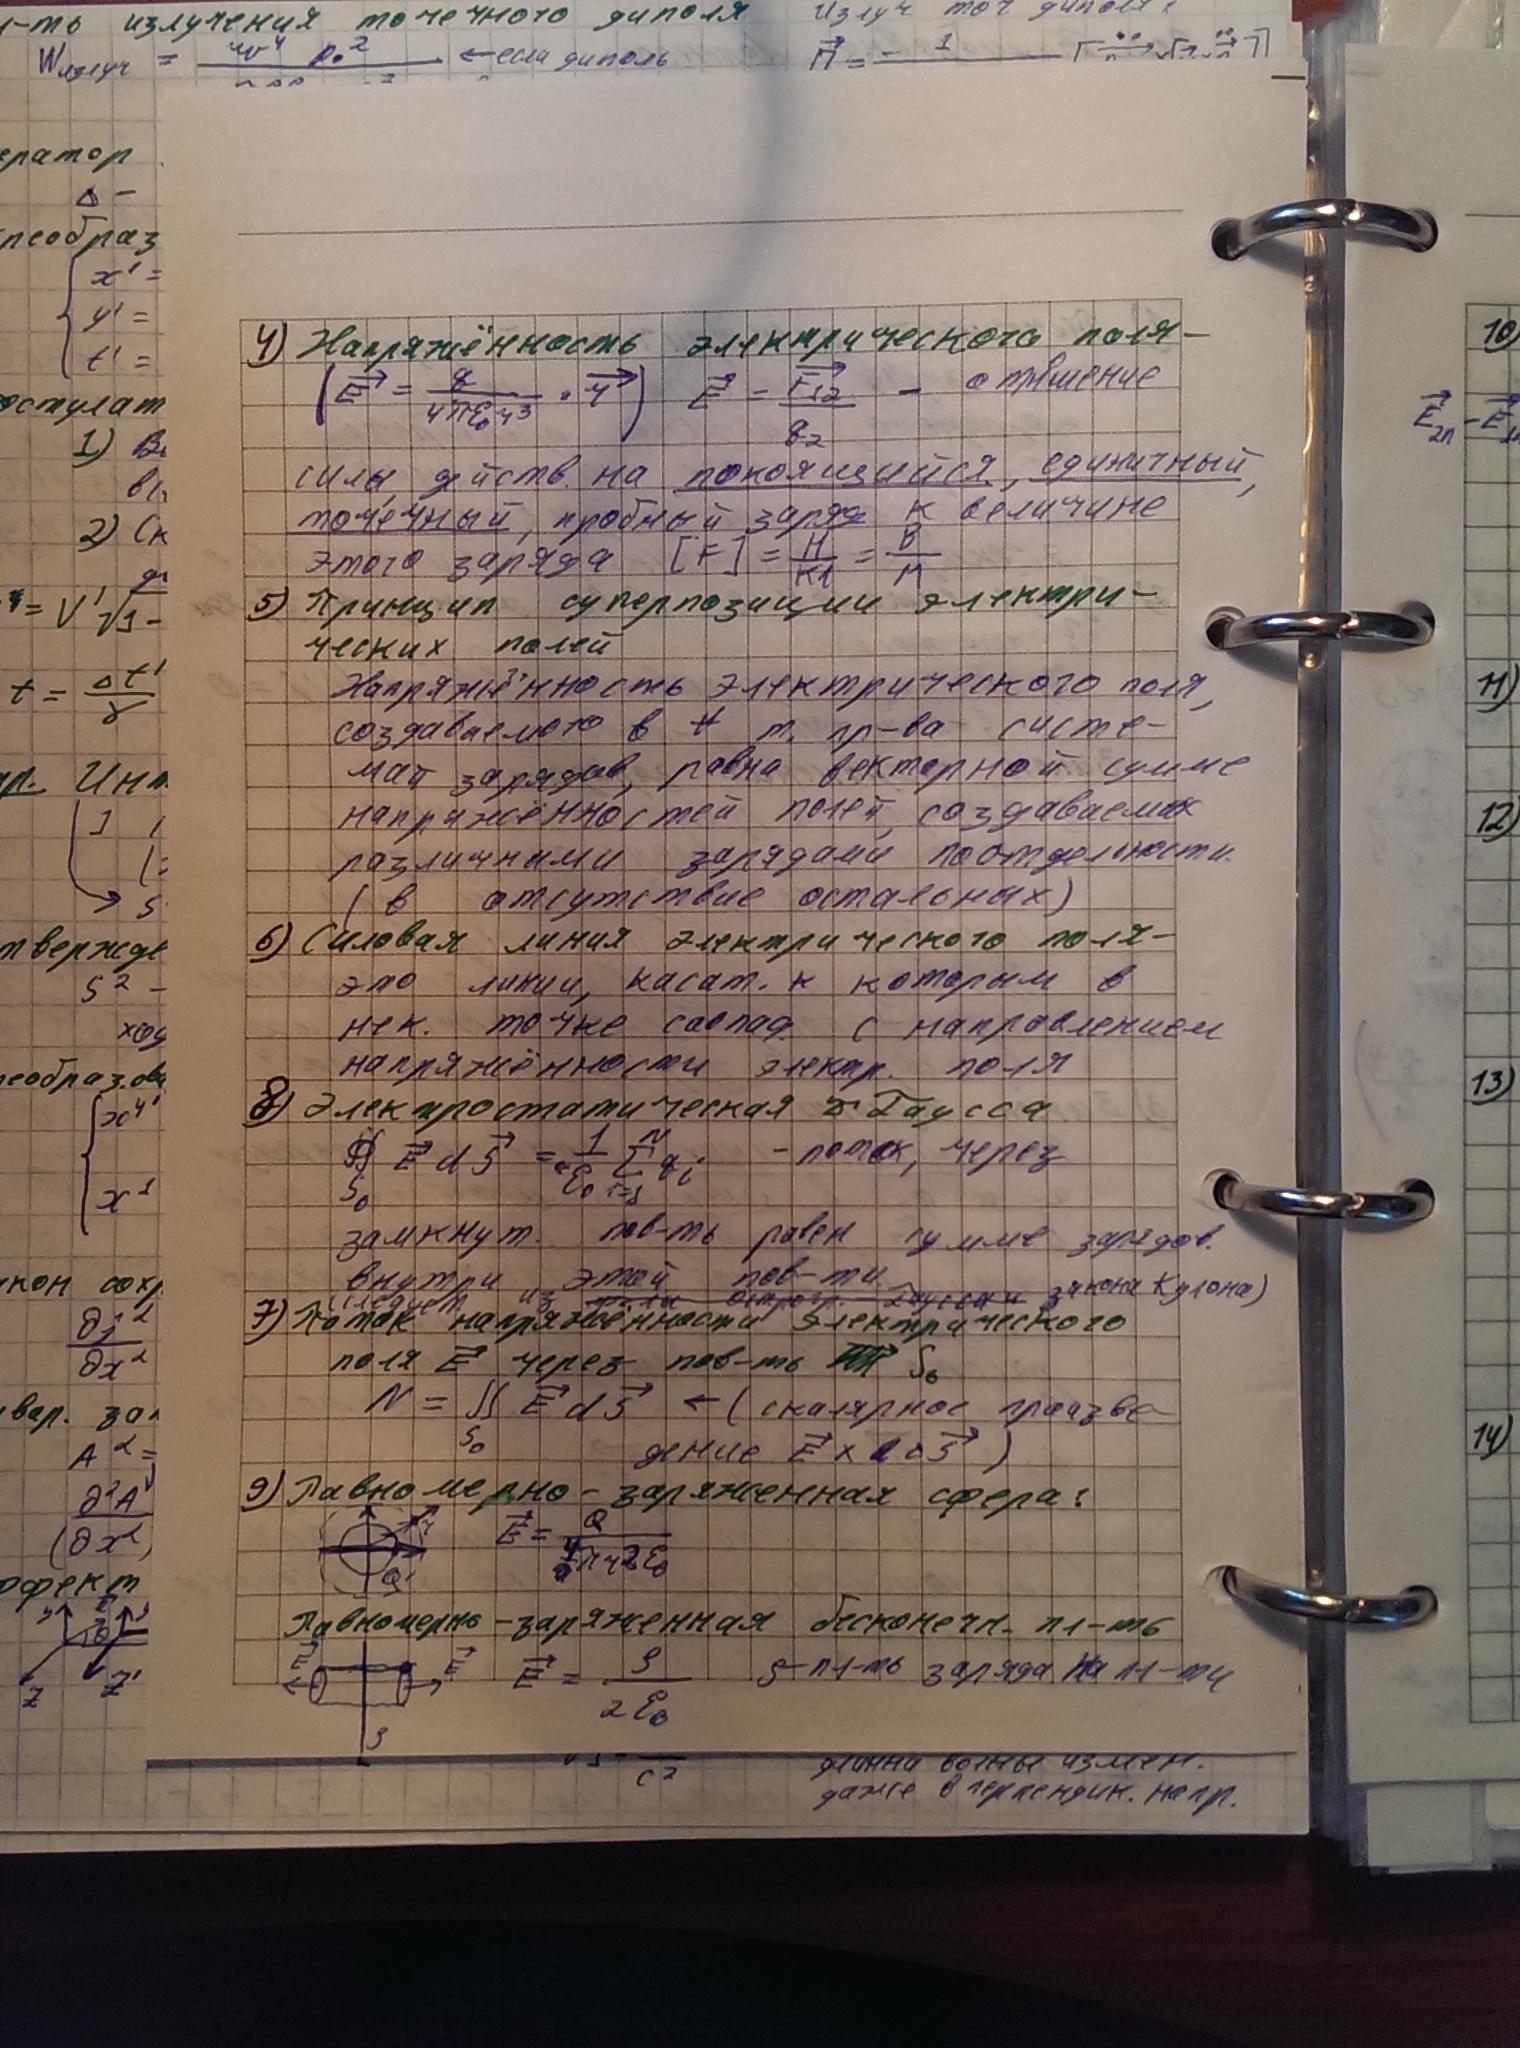 1-ть излучения точечного диполя
Wизлуч = ←если диполь
излуч точ диполя:
П = - 1
ератор
Δ -
реобраз
x' =
y' =
t' =
остулат
1) В
2) Ск
= V' √1 -
t = Δt' / γ
р. Инт
S
тверж де
S² -
ход
еобраз. ов
x⁴'
x¹
кон сохр
вар. зак
ффект
Z Z'
4) Напряжённость электрического поля-
(E⃗ = q / 4πε₀r³ · r⃗) E⃗ = F⃗₁₂ / q₂ - отношение
силы, действ. на покоящийся, единичный,
точечный, пробный заряд к величине
этого заряда [F] = Н/Кл = В/м
5) Принцип суперпозиции электри-
ческих полей
Напряжённость электрического поля,
создаваемого в ∀ т. пр-ва систе-
мой зарядов, равна векторной сумме
напряжённостей полей, создаваемых
различными зарядами поотдельности.
(в отсутствие остальных)
6) Силовая линия электрического поля-
это линии, касат. к которым в
нек. точке совпад. с направлением
напряжённости электр. поля
8) Электростатическая т Гаусса
∯ E⃗ dS⃗ = 1/ε₀ Σ qᵢ - поток, через
S₀ i=1 N
замкнут. пов-ть равен сумме зарядов.
внутри этой пов-ти
(следует из закона Кулона)
7) Поток напряжённости электрического
поля E⃗ через пов-ть S₀
N = ∬ E⃗ dS⃗ ← (скалярное произве-
S₀ дение E⃗ x dS⃗)
9) Равномерно-заряженная сфера:
E⃗ = Q / 4πr²ε₀
Равномерно-заряженная бесконечн. пл-ть
E⃗ E⃗ E⃗ = ρ / 2ε₀ ρ-пл-ть заряда на пл-ти
c²
длинна волны измен.
даже в перпендик. напр.
10)
E⃗₂ₙ - E⃗
11)
12)
13)
14)